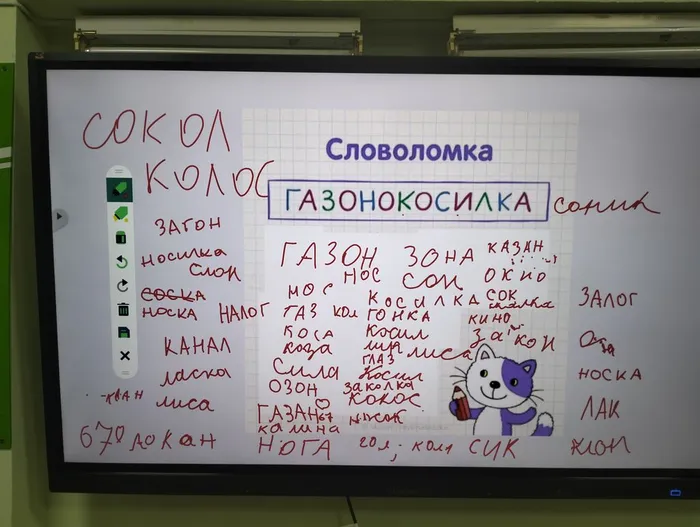 СОКОЛ
Словоломка
КОЛОС
ГАЗОНОКОСИЛКА
соник
ЗАГОН
ГАЗОН ЗОНА КАЗАН
НОСИЛКА
НОС СОН ОКНО
Слон
КОСИЛКА СОК
ЗАЛОГ
СОСКА
НОСКА НАЛОГ ГАЗ кол ГОНКА КИНО
КОСА КОСИЛ ЗАКОН
КАНАЛ коза лиса
ГЛАЗ
ласка СИЛА Косил НОСКА
ОЗОН ЗАКОЛКА
лиса КОКОС
ГАЗАН 67 ЛАК
калина
НОГА гол, кол СИК